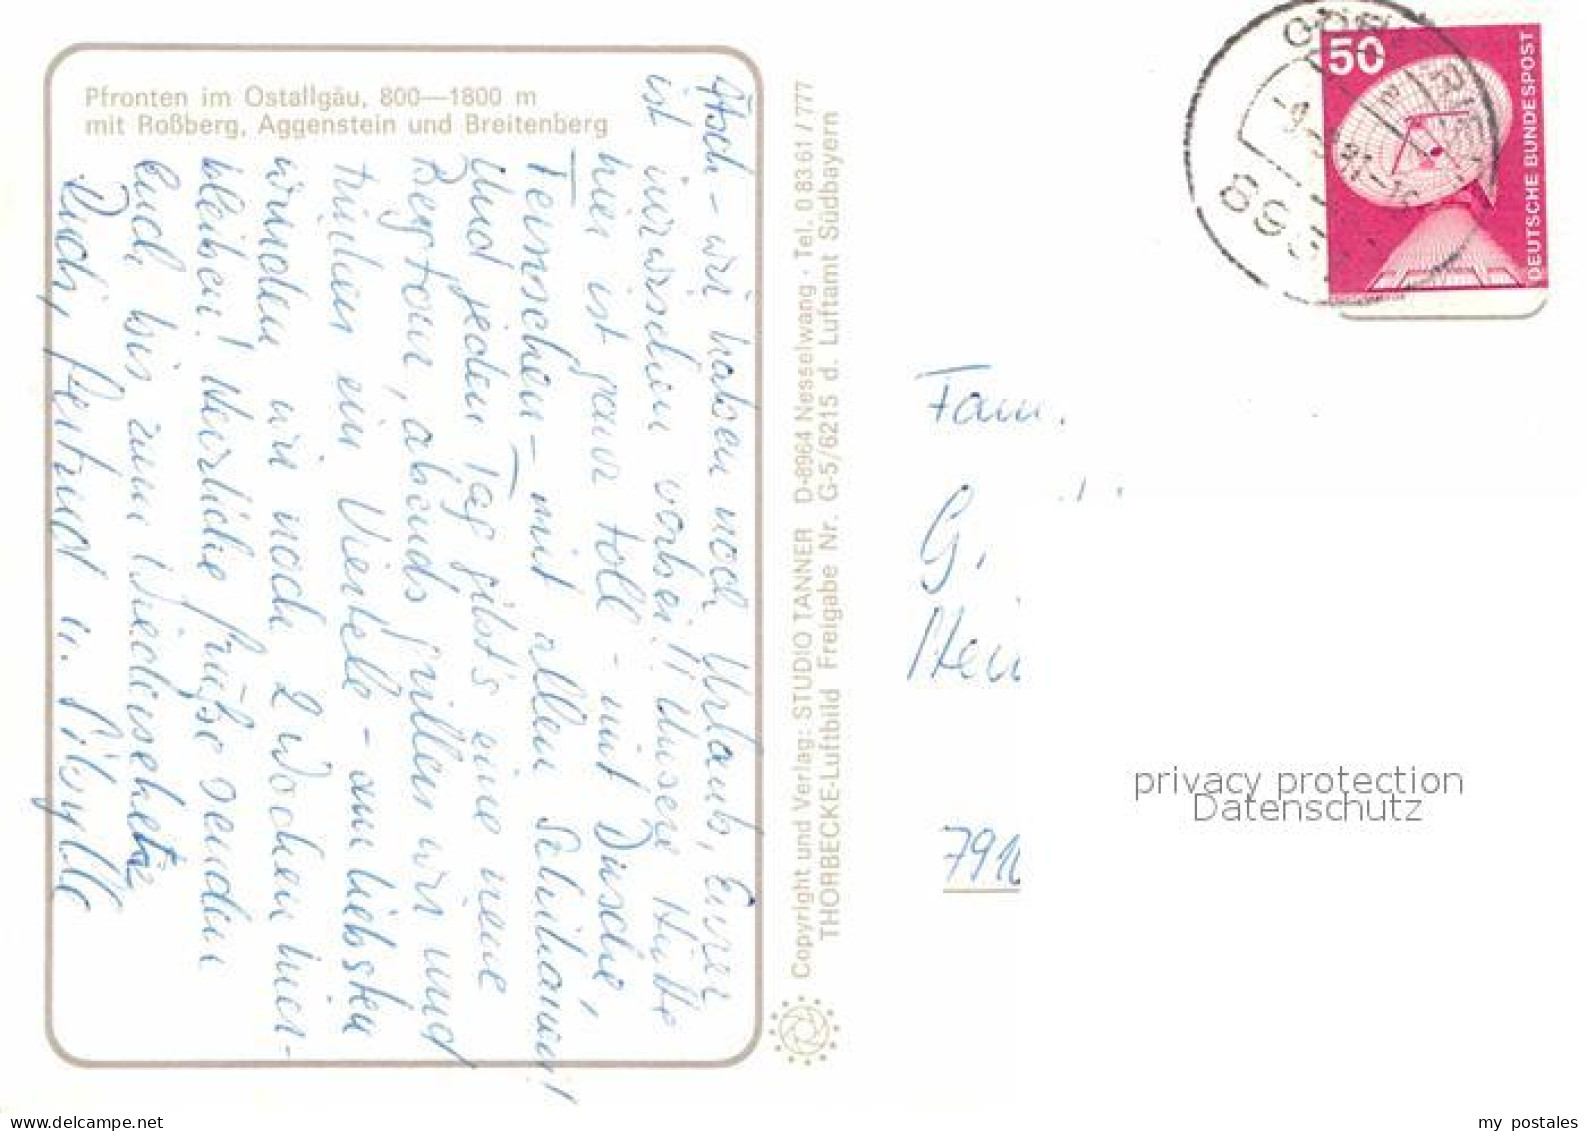 Pfronten im Ostallgäu, 800—1800 m
mit Roßberg, Aggenstein und Breitenberg
Ätsch - wir haben noch Urlaub, Eurer
ist inzwischen vorbei!! Unsere Hütte
hier ist ganz toll - mit Dusche,
Fernsehen - mit allen Schikanen!
Und jeden Tag gibt's eine neue
Bergtour, abends grillen wir und
trinken ein Viertele - am liebsten
würden wir noch 2 Wochen hier-
bleiben! Herzliche Grüße senden
Euch bis zum Wiedersehen
Rudi, Gertrud u. Sibylle
Copyright und Verlag: STUDIO TANNER D-8964 Nesselwang · Tel. 0 83 61 / 777
THORBECKE-Luftbild Freigabe Nr. G-5/6215 d. Luftamt Südbayern
50
DEUTSCHE BUNDESPOST
Fam.
G.
791
privacy protection
Datenschutz
www.delcampe.net
my postales